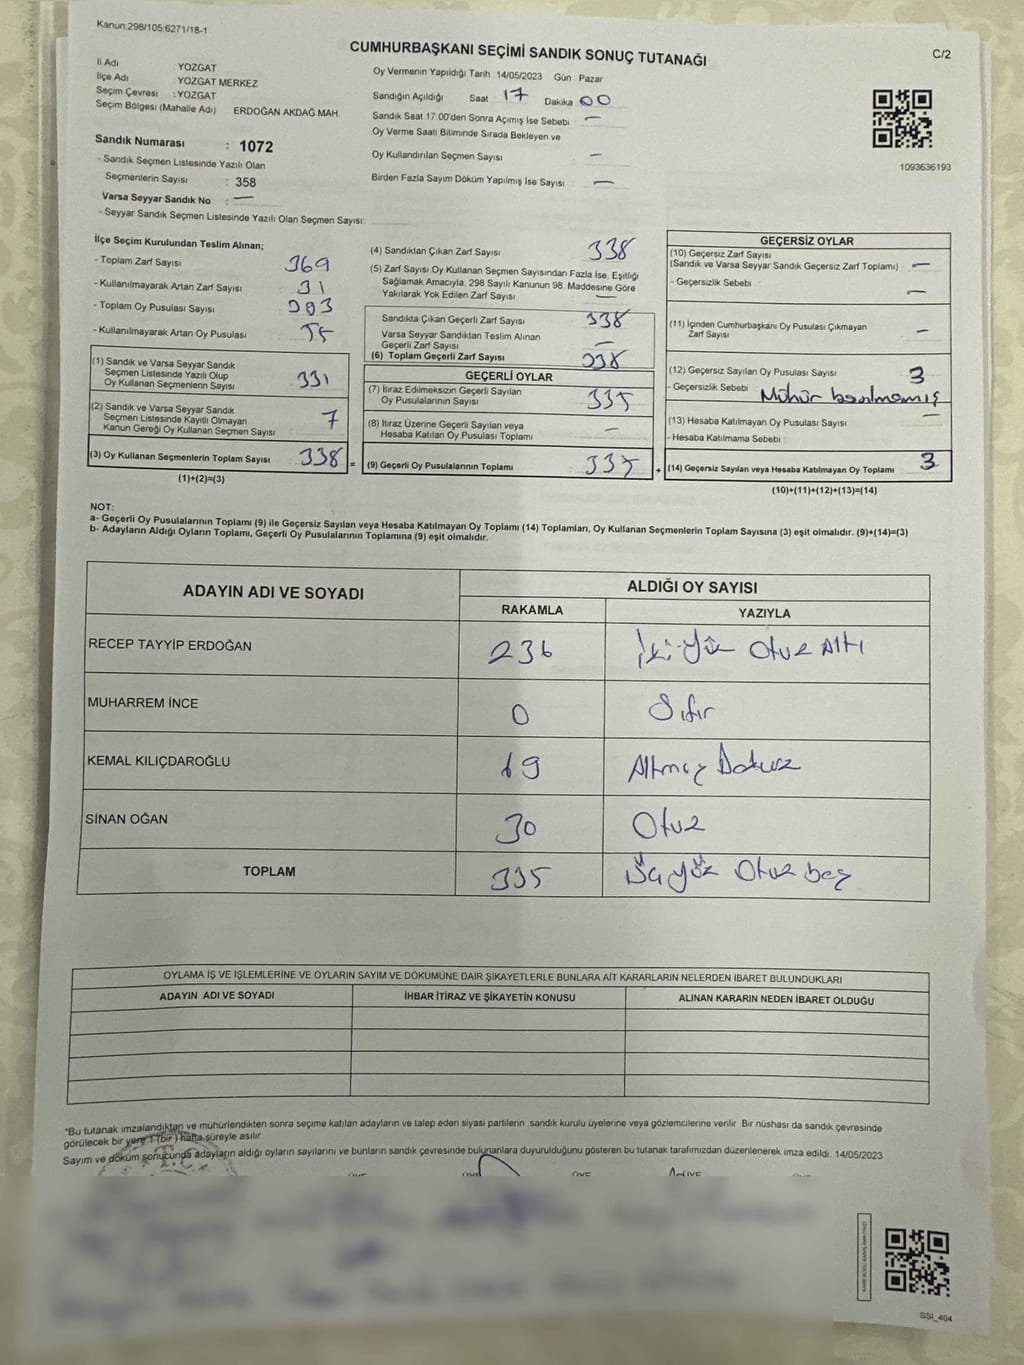 Kanun:298/105;6271/18-1
C/2
CUMHURBAŞKANI SEÇİMİ SANDIK SONUÇ TUTANAĞI
İl Adı YOZGAT
İlçe Adı YOZGAT MERKEZ
Seçim Çevresi : YOZGAT
Seçim Bölgesi (Mahalle Adı) ERDOĞAN AKDAĞ MAH
Sandık Numarası : 1072
- Sandık Seçmen Listesinde Yazılı Olan
Seçmenlerin Sayısı : 358
Varsa Seyyar Sandık No : —
- Seyyar Sandık Seçmen Listesinde Yazılı Olan Seçmen Sayısı:
Oy Vermenin Yapıldığı Tarih 14/05/2023 Gün Pazar
Sandığın Açıldığı Saat 17 Dakika 00
Sandık Saat 17.00'den Sonra Açılmış İse Sebebi —
Oy Verme Saati Bitiminde Sırada Bekleyen ve
Oy Kullandırılan Seçmen Sayısı —
Birden Fazla Sayım Döküm Yapılmış İse Sayısı —
1093636193
İlçe Seçim Kurulundan Teslim Alınan;
- Toplam Zarf Sayısı 369
- Kullanılmayarak Artan Zarf Sayısı 31
- Toplam Oy Pusulası Sayısı 393
- Kullanılmayarak Artan Oy Pusulası 55
(1) Sandık ve Varsa Seyyar Sandık
Seçmen Listesinde Yazılı Olup
Oy Kullanan Seçmenlerin Sayısı 331
(2) Sandık ve Varsa Seyyar Sandık
Seçmen Listesinde Kayıtlı Olmayan
Kanun Gereği Oy Kullanan Seçmen Sayısı 7
(3) Oy Kullanan Seçmenlerin Toplam Sayısı 338 =
(1)+(2)=(3)
(4) Sandıktan Çıkan Zarf Sayısı 338
(5) Zarf Sayısı Oy Kullanan Seçmen Sayısından Fazla İse, Eşitliği
Sağlamak Amacıyla, 298 Sayılı Kanunun 98. Maddesine Göre
Yakılarak Yok Edilen Zarf Sayısı —
Sandıkta Çıkan Geçerli Zarf Sayısı 338
Varsa Seyyar Sandıktan Teslim Alınan
Geçerli Zarf Sayısı —
(6) Toplam Geçerli Zarf Sayısı 338
GEÇERLİ OYLAR
(7) İtiraz Edilmeksizin Geçerli Sayılan
Oy Pusulalarının Sayısı 335
(8) İtiraz Üzerine Geçerli Sayılan veya
Hesaba Katılan Oy Pusulası Toplamı —
(9) Geçerli Oy Pusulalarının Toplamı 335 +
GEÇERSİZ OYLAR
(10) Geçersiz Zarf Sayısı
(Sandık ve Varsa Seyyar Sandık Geçersiz Zarf Toplamı) —
- Geçersizlik Sebebi —
(11) İçinden Cumhurbaşkanı Oy Pusulası Çıkmayan
Zarf Sayısı —
(12) Geçersiz Sayılan Oy Pusulası Sayısı 3
- Geçersizlik Sebebi Mühür basılmamış
(13) Hesaba Katılmayan Oy Pusulası Sayısı —
- Hesaba Katılmama Sebebi
(14) Geçersiz Sayılan veya Hesaba Katılmayan Oy Toplamı 3
(10)+(11)+(12)+(13)=(14)
NOT:
a- Geçerli Oy Pusulalarının Toplamı (9) ile Geçersiz Sayılan veya Hesaba Katılmayan Oy Toplamı (14) Toplamları, Oy Kullanan Seçmenlerin Toplam Sayısına (3) eşit olmalıdır. (9)+(14)=(3)
b- Adayların Aldığı Oyların Toplamı, Geçerli Oy Pusulalarının Toplamına (9) eşit olmalıdır.
ADAYIN ADI VE SOYADI ALDIĞI OY SAYISI
RAKAMLA YAZIYLA
RECEP TAYYİP ERDOĞAN 236 İki Yüz Otuz Altı
MUHARREM İNCE 0 Sıfır
KEMAL KILIÇDAROĞLU 69 Altmış Dokuz
SİNAN OĞAN 30 Otuz
TOPLAM 335 Üç yüz Otuz beş
OYLAMA İŞ VE İŞLEMLERİNE VE OYLARIN SAYIM VE DÖKÜMÜNE DAİR ŞİKAYETLERLE BUNLARA AİT KARARLARIN NELERDEN İBARET BULUNDUKLARI
ADAYIN ADI VE SOYADI İHBAR İTİRAZ VE ŞİKAYETİN KONUSU ALINAN KARARIN NEDEN İBARET OLDUĞU
*Bu tutanak imzalandıktan ve mühürlendikten sonra seçime katılan adayların ve talep eden siyasi partilerin sandık kurulu üyelerine veya gözlemcilerine verilir. Bir nüshası da sandık çevresinde
görülecek bir yere 1 (bir) hafta süreyle asılır.
Sayım ve döküm sonucunda adayların aldığı oyların sayılarını ve bunların sandık çevresinde bulunanlara duyurulduğunu gösteren bu tutanak tarafımızdan düzenlenerek imza edildi. 14/05/2023
T.C.
SSI_404